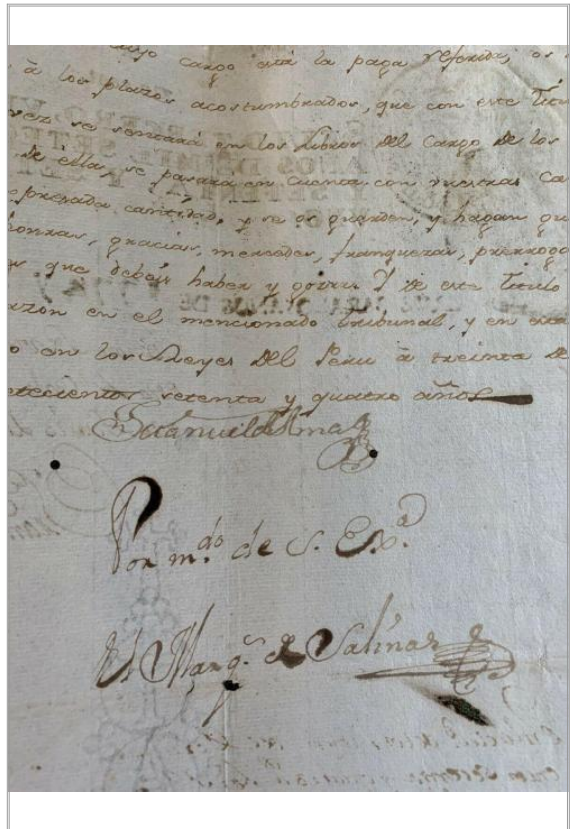 cuyo cargo está la paga referida, os
, à los plazos acostumbrados, que con este Titu
vez se sentará en los Libros del Cargo de los
de ella, se pasará en cuenta con vuestras Ca
presada cantidad, y se os guarden, y hagan gu
onras, gracias, mercedes, franquezas, prerroga
que debéis haber y gozar. Y de este Titulo
azon en el mencionado tribunal, y en esta
o en los Reyes del Peru à treinta de
etecientos setenta y quatro años
Manuel de Amat
Por m.do de S. Ex.a
El Marq.s de Salinas